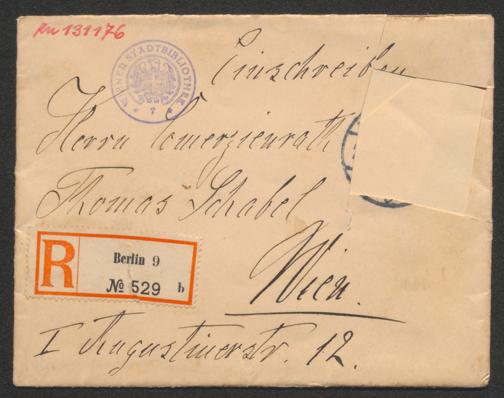 IN 131176
WIENER STADTBIBLIOTHEK
Einschreiben
Herrn Comerzienrath
Thomas Schabel
R Berlin 9
№ 529 b
Wien.
I Augustinerstr. 12.